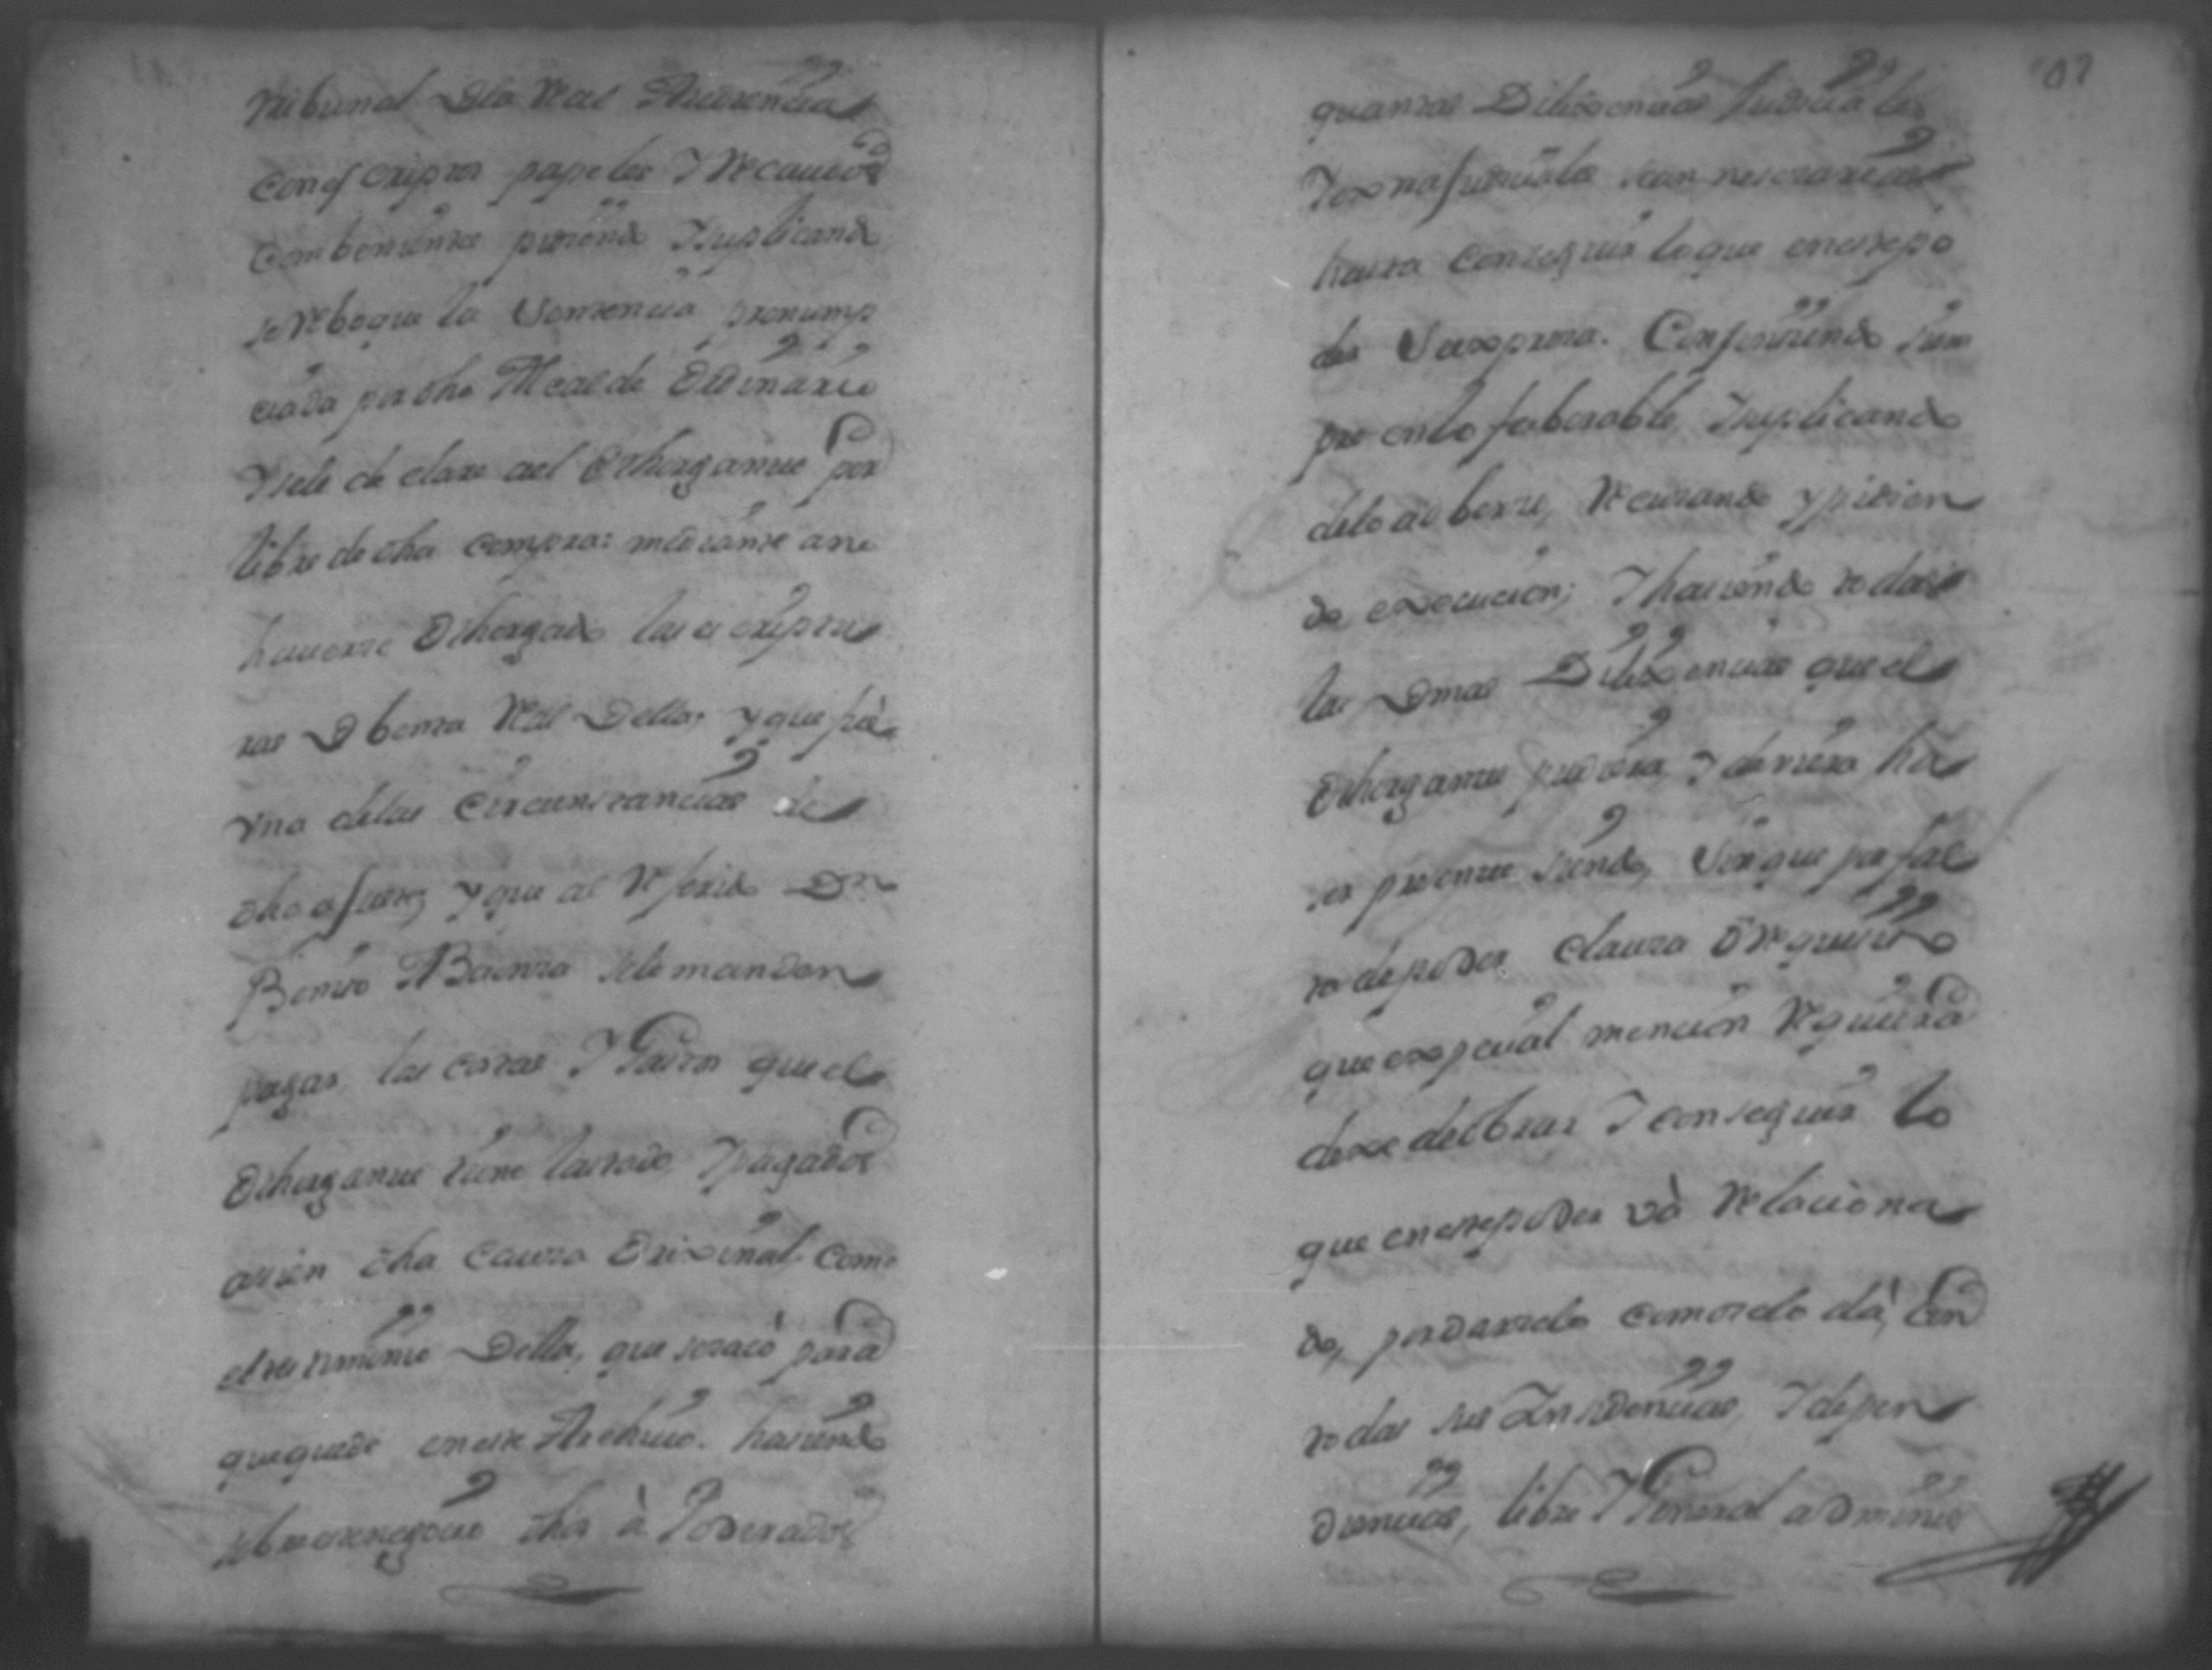 tribunal Dela Real Audiencia
con escriptos papeles I Recaudos
combenientes pidiendo Isuplicando
se Reboque la Sentencia pronunp
ciada por dho Alcalde Ordinario
Isele declare ael Othorgante por
libre de dha compra: mediante ano
hauerse Othorgado las escriptu
ras D benta Real Della, y que fue
vna delas Circunstancias de
dho asumpto y que al Referido Dn
Benito Baena sele manden
pagar las costas I Gastos que el
Othorgante tiene lastado, I pagados
asien dha causa Orixinal como
el testimonio Della, que se sacó para
que quede en este Archiuo. hasiendo
sobre este negocio dhos à Poderados
07
quantas Dilixencias Judiciales
I exrrajudiciales sean nesesarias
hasta conseguir lo que en este po
der Se expresa. Consintiendo Siem
pre en lo faborable, Isuplicando
delo adberso, Recusando y pidien
do execucion; I hasiendo todas
las Demas Dilixencias que el
Othorgante pudiera, I deuiera ha
ser presente siendo, Sin que por fal
ta de poder, clausula O Requisito
que expecial mencion Requiera
dexe de obrar I conseguir lo
que en este poder và Relaciona
do, por darselo como selo dà, Con
todas sus Insidencias, I depen
diencias, libre I General adminis